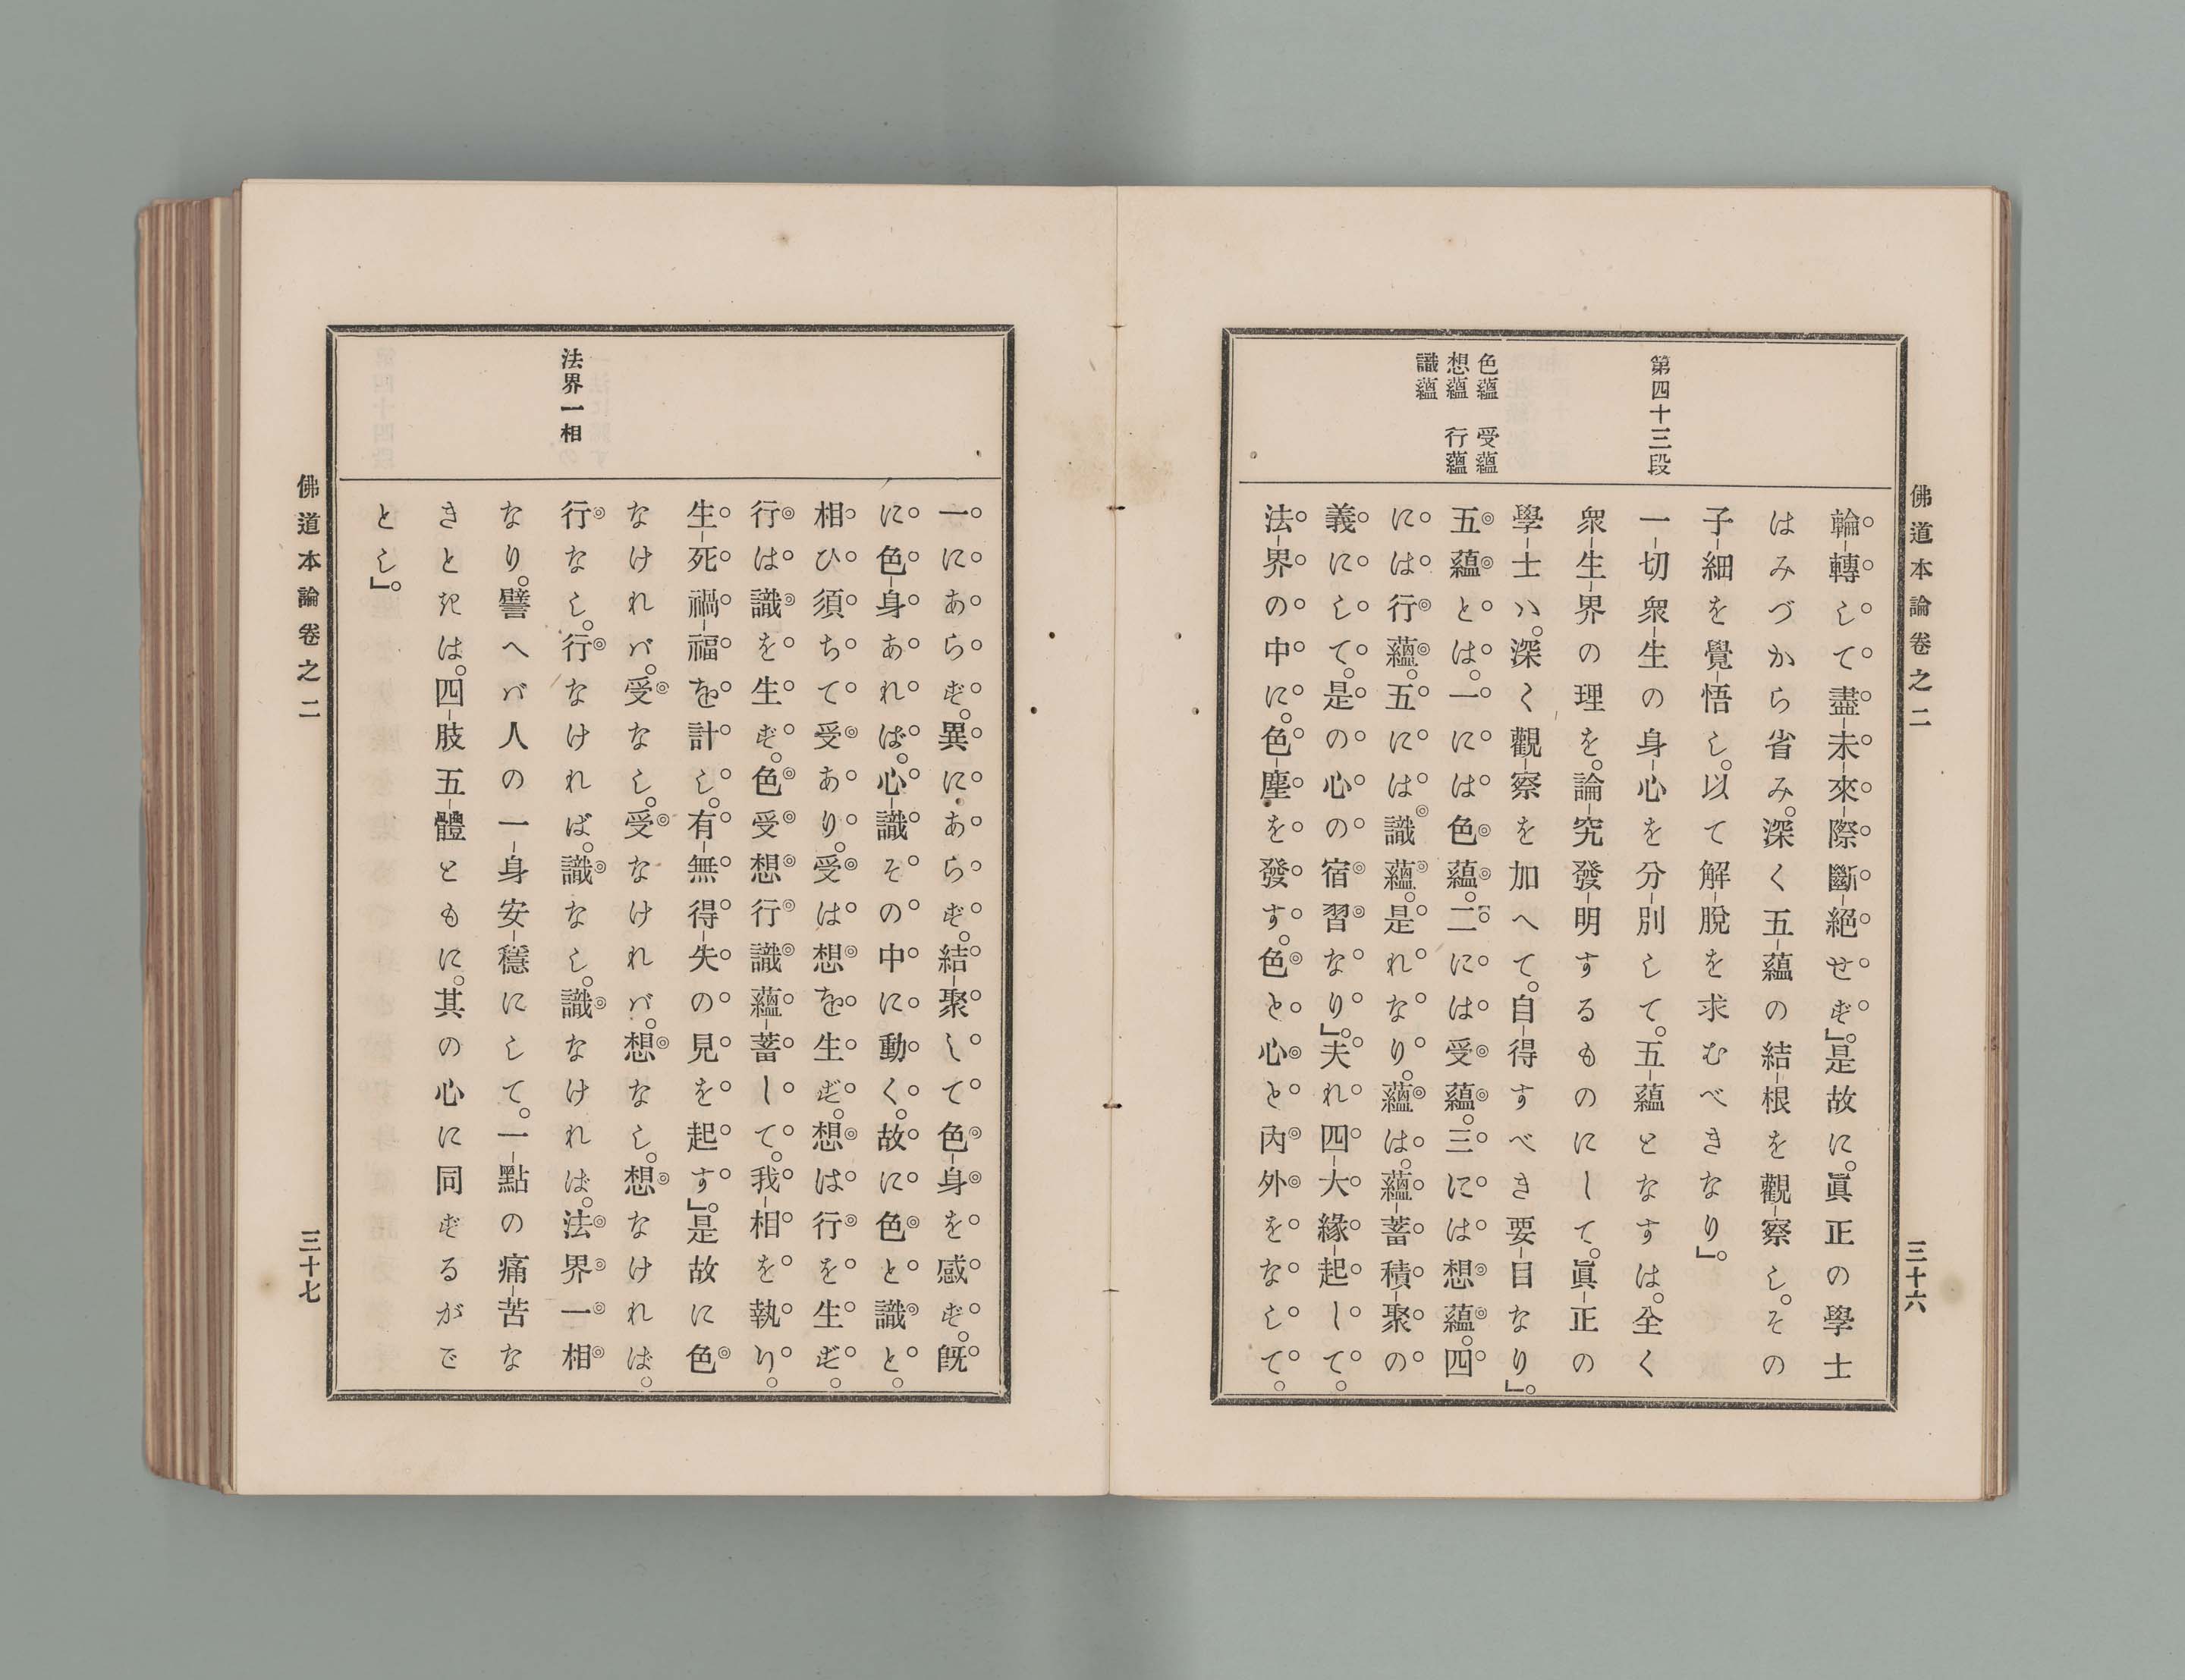 佛道本論卷之二
三十六
第四十三段
色蘊 受蘊
想蘊 行蘊
識蘊
輪-轉して盡-未-來-際斷-絕せず」。是故に。眞正の學士
はみづから省み。深く五-蘊の結-根を觀-察し。その
子-細を覺-悟し。以て解-脫を求むべきなり」。
一-切衆-生の身-心を分-別して。五-蘊となすは。全く
衆-生-界の理を。論-究發-明するものにして。眞-正の
學-士ハ。深く觀-察を加へて。自-得すべき要-目なり」。
五蘊とは。一には色蘊。二には受蘊。三には想蘊。四
には行蘊。五には識蘊。是れなり。蘊は。蘊-蓄積-聚の
義にして。是の心の宿習なり」。夫れ四-大緣-起して。
法-界の中に。色-塵を發す。色と心と內外をなして。
法界一相
一にあらず。異にあらず。結-聚して色-身を感ず。既
に色-身あれば。心-識その中に動く。故に色と識と。
相ひ須ちて受あり。受は想を生ず。想は行を生ず。
行は識を生ず。色受想行識蘊-蓄して。我-相を執り。
生-死禍-福を計し。有-無得-失の見を起す」。是故に色
なけれバ。受なし。受なけれバ。想なし。想なければ。
行なし。行なければ。識なし。識なければ。法界一相
なり。譬へバ人の一-身安-穩にして。一-點の痛-苦な
きときは。四-肢五-體ともに。其の心に同ずるがご
とし」。
佛道本論卷之二
三十七